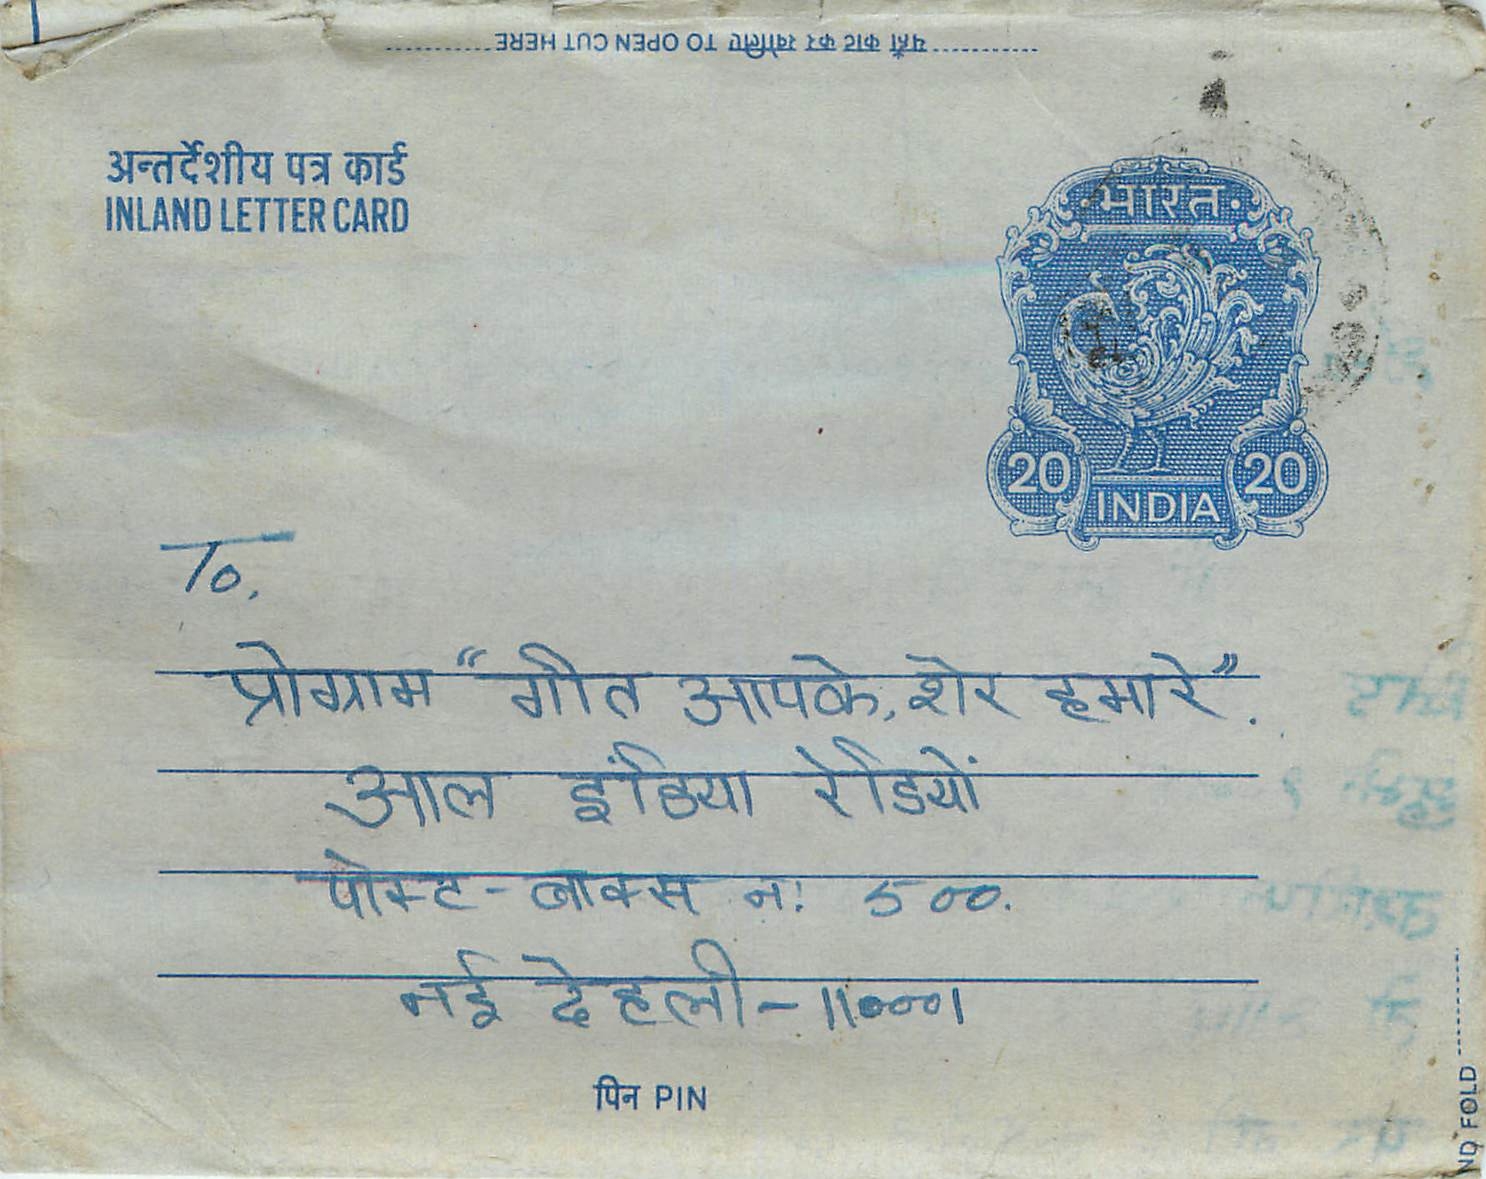 यहाँ काट कर खोलिए TO OPEN CUT HERE
अन्तर्देशीय पत्र कार्ड
INLAND LETTER CARD
भारत
20 20
INDIA
To,
प्रोग्राम "गीत आपके, शेर हमारे".
आल इंडिया रेडियों
पोस्ट-बाक्स न: 500.
नई देहली-110001
पिन PIN
ND FOLD